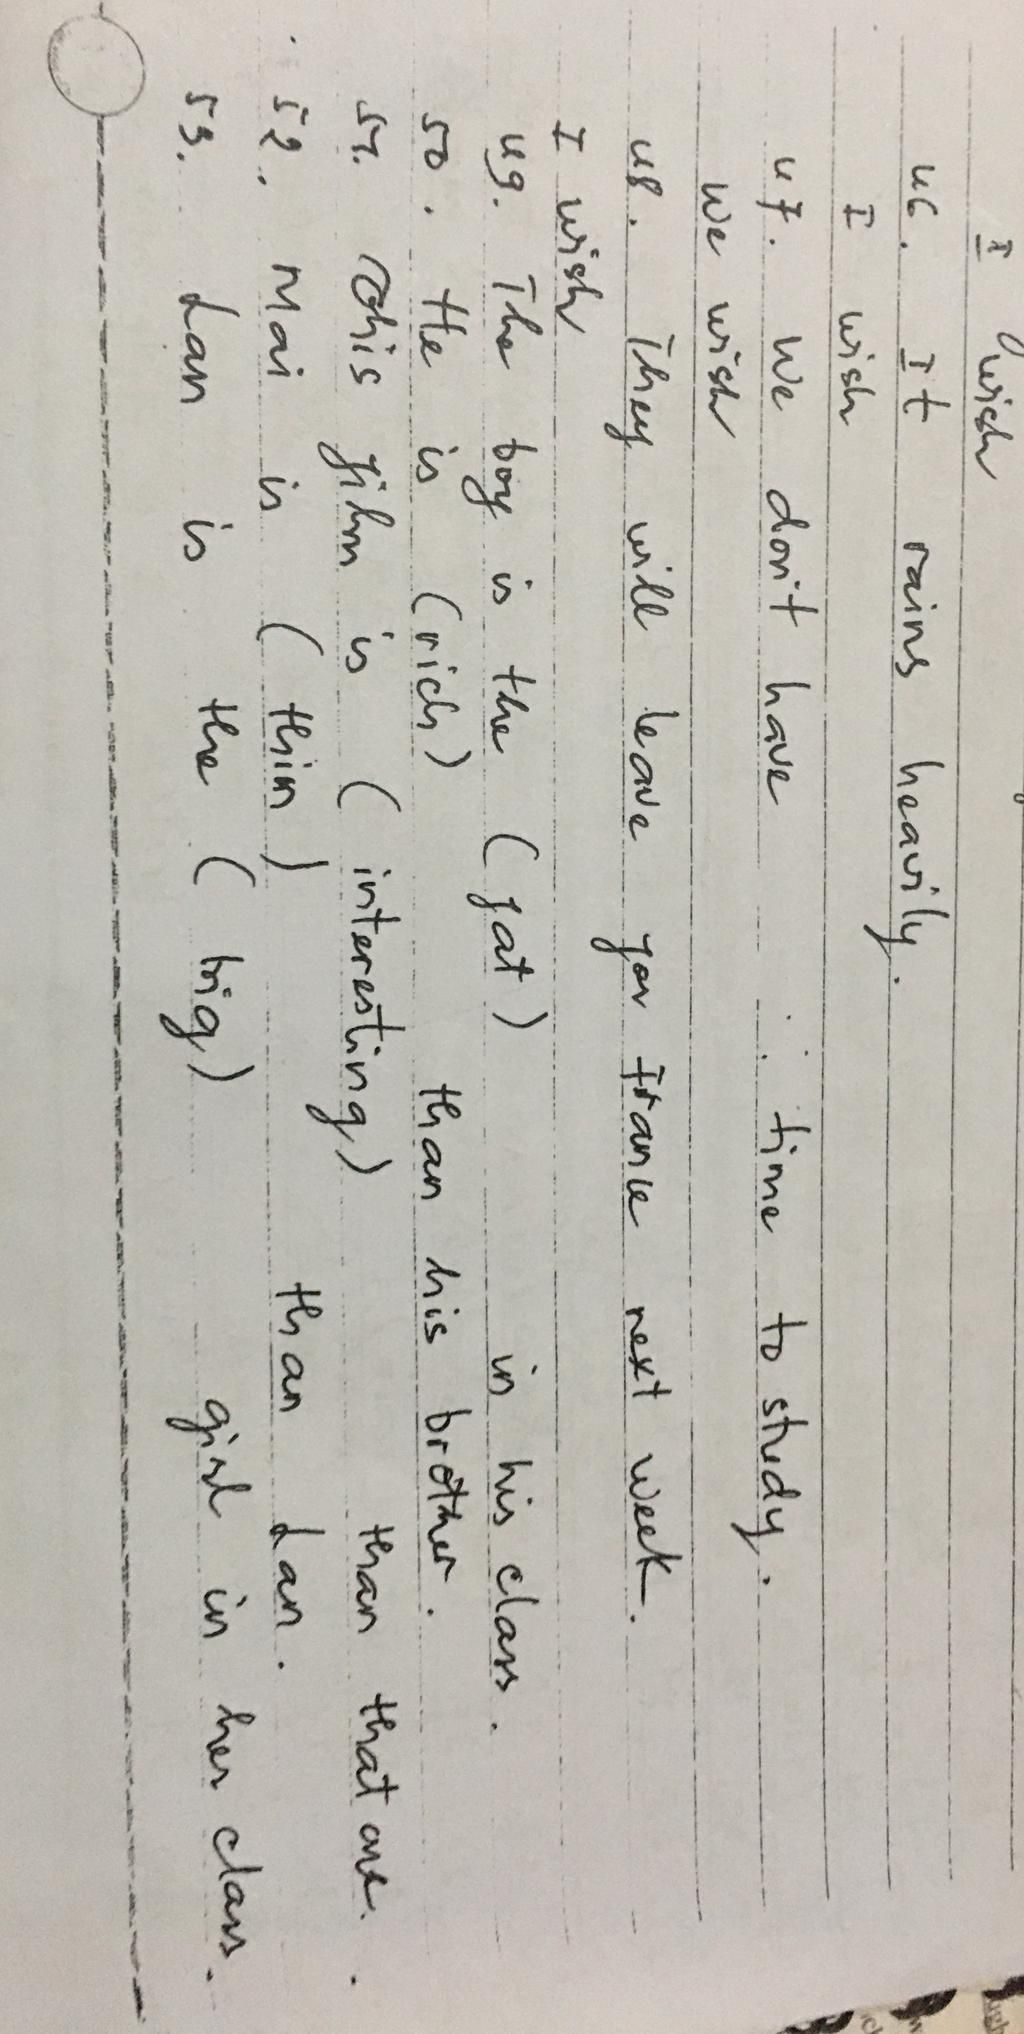 I wish
46. It rains heavily.
I wish
47. We don't have time to study.
We wish
48. They will leave for France next week.
I wish
49. The boy is the (fat) in his class.
50. He is (rich) than his brother.
51. This film is (interesting) than that one.
52. Mai is (thin) than Lan.
53. Lan is the (big) girl in her class.